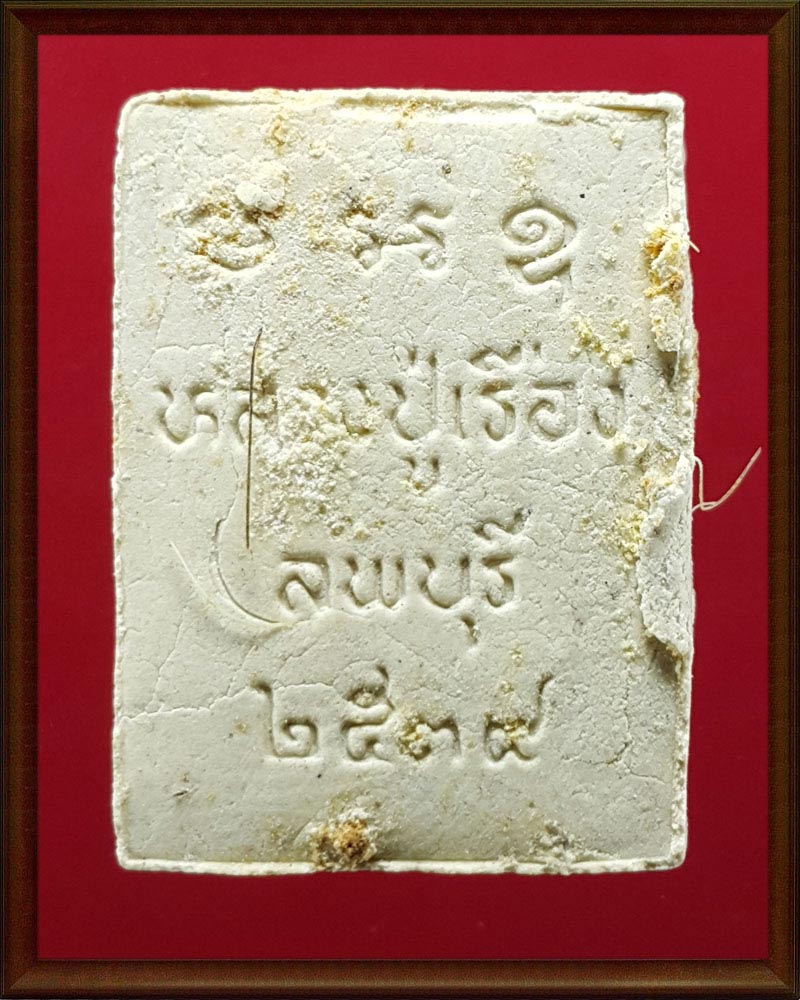 หลวงปู่เรือง
ลพบุรี
๒๕๓๙